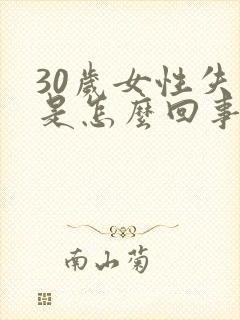 30歲女性失
是怎麼回事
南山菊